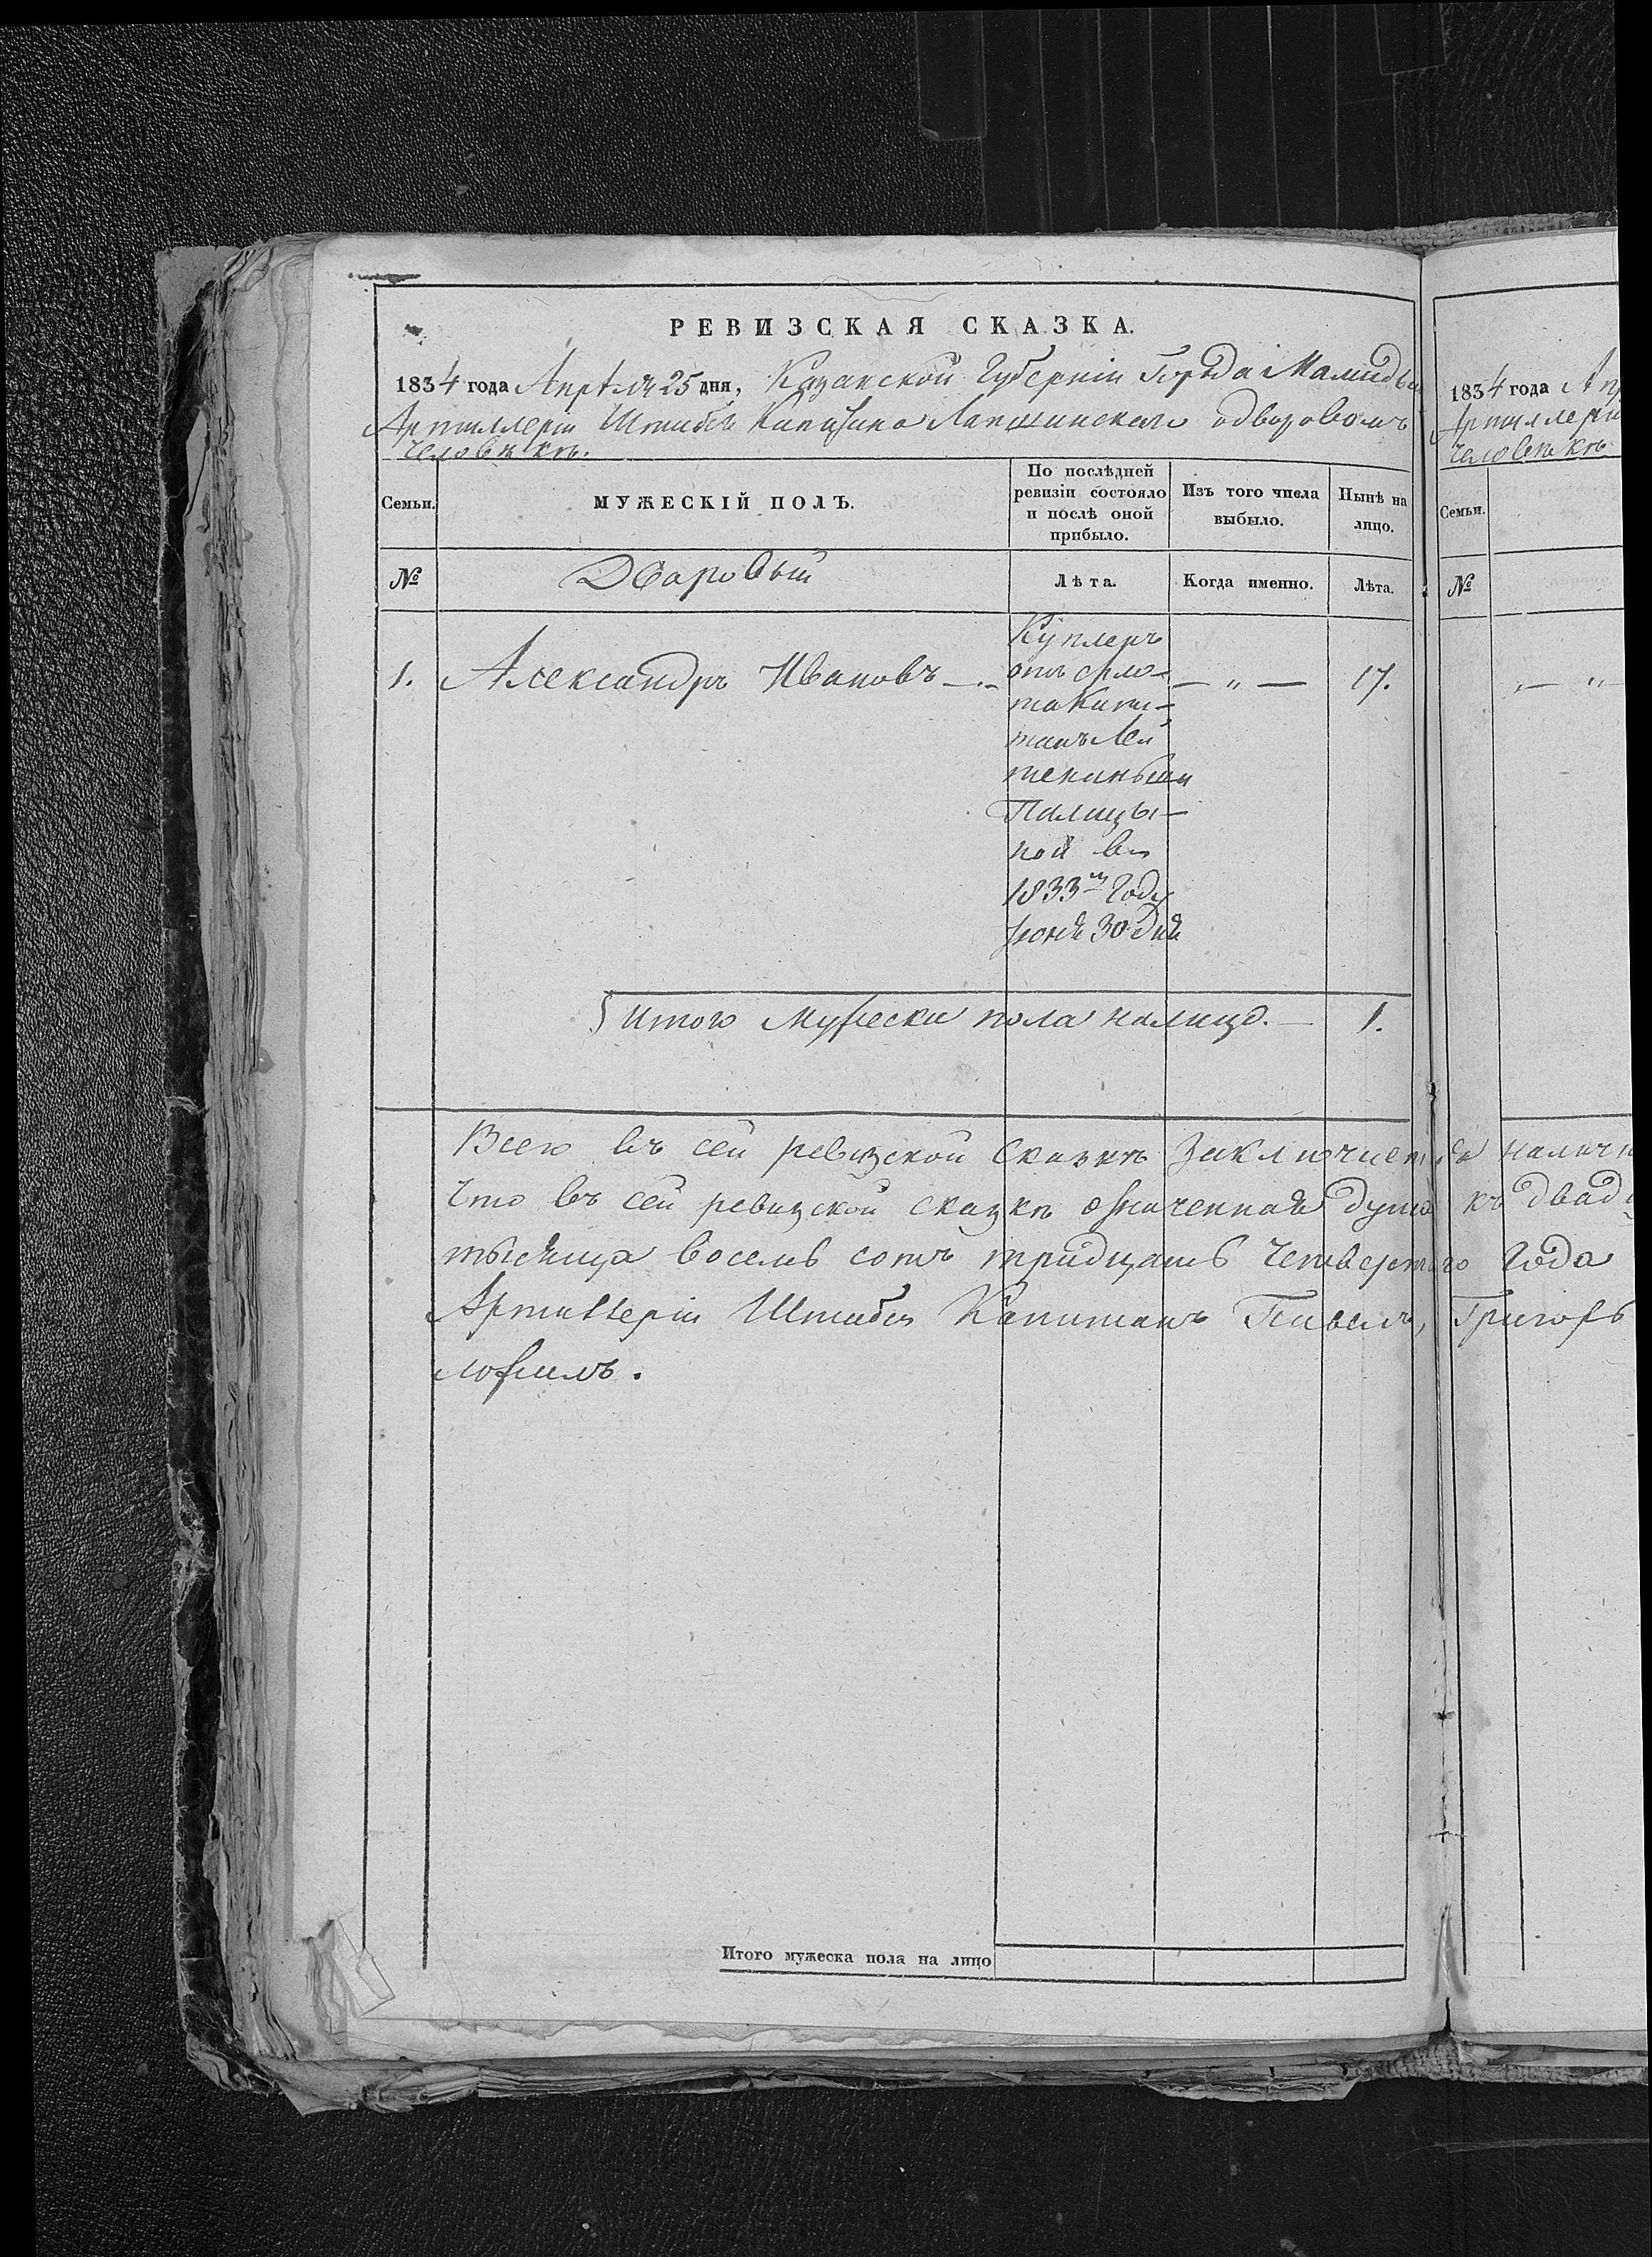 РЕВИЗСКАЯ СКАЗКА.
1834 года Апреля 25 дня, Казанской Губернiи Города Мамадыш
Артиллерiи Штабсъ Капитана Лапшинскаго одворовомъ
человѣкѣ.
Семьи.
МУЖЕСКIЙ ПОЛЪ.
По послѣдней ревизiи состояло и послѣ оной прибыло.
Изъ того числа выбыло.
Нынѣ на лицо.
№
Дваровый
Лѣта.
Когда именно.
Лѣта.
1. Александръ Ивановъ — Купленъ
отъ
— „ — 17.
танъ Лей
тенаньши
Палицы-
ной въ
1833м Году
Июня 30 дня
Итого Мужеска пола налицо. — 1.
Всего въ сей ревизской Сказкѣ Заключается наличн
Что въ сей ревизской сказкѣ означенная душа къ двадц
тысяща восемь сотъ тридцать Четвертого Года
Артиллерiи Штабсъ Капитанъ Павелъ, Григорь
ложилъ.
Итого мужеска пола на лицо
1834 года Ап
Артиллерi
человѣкѣ
Семьи.
№
— „ —